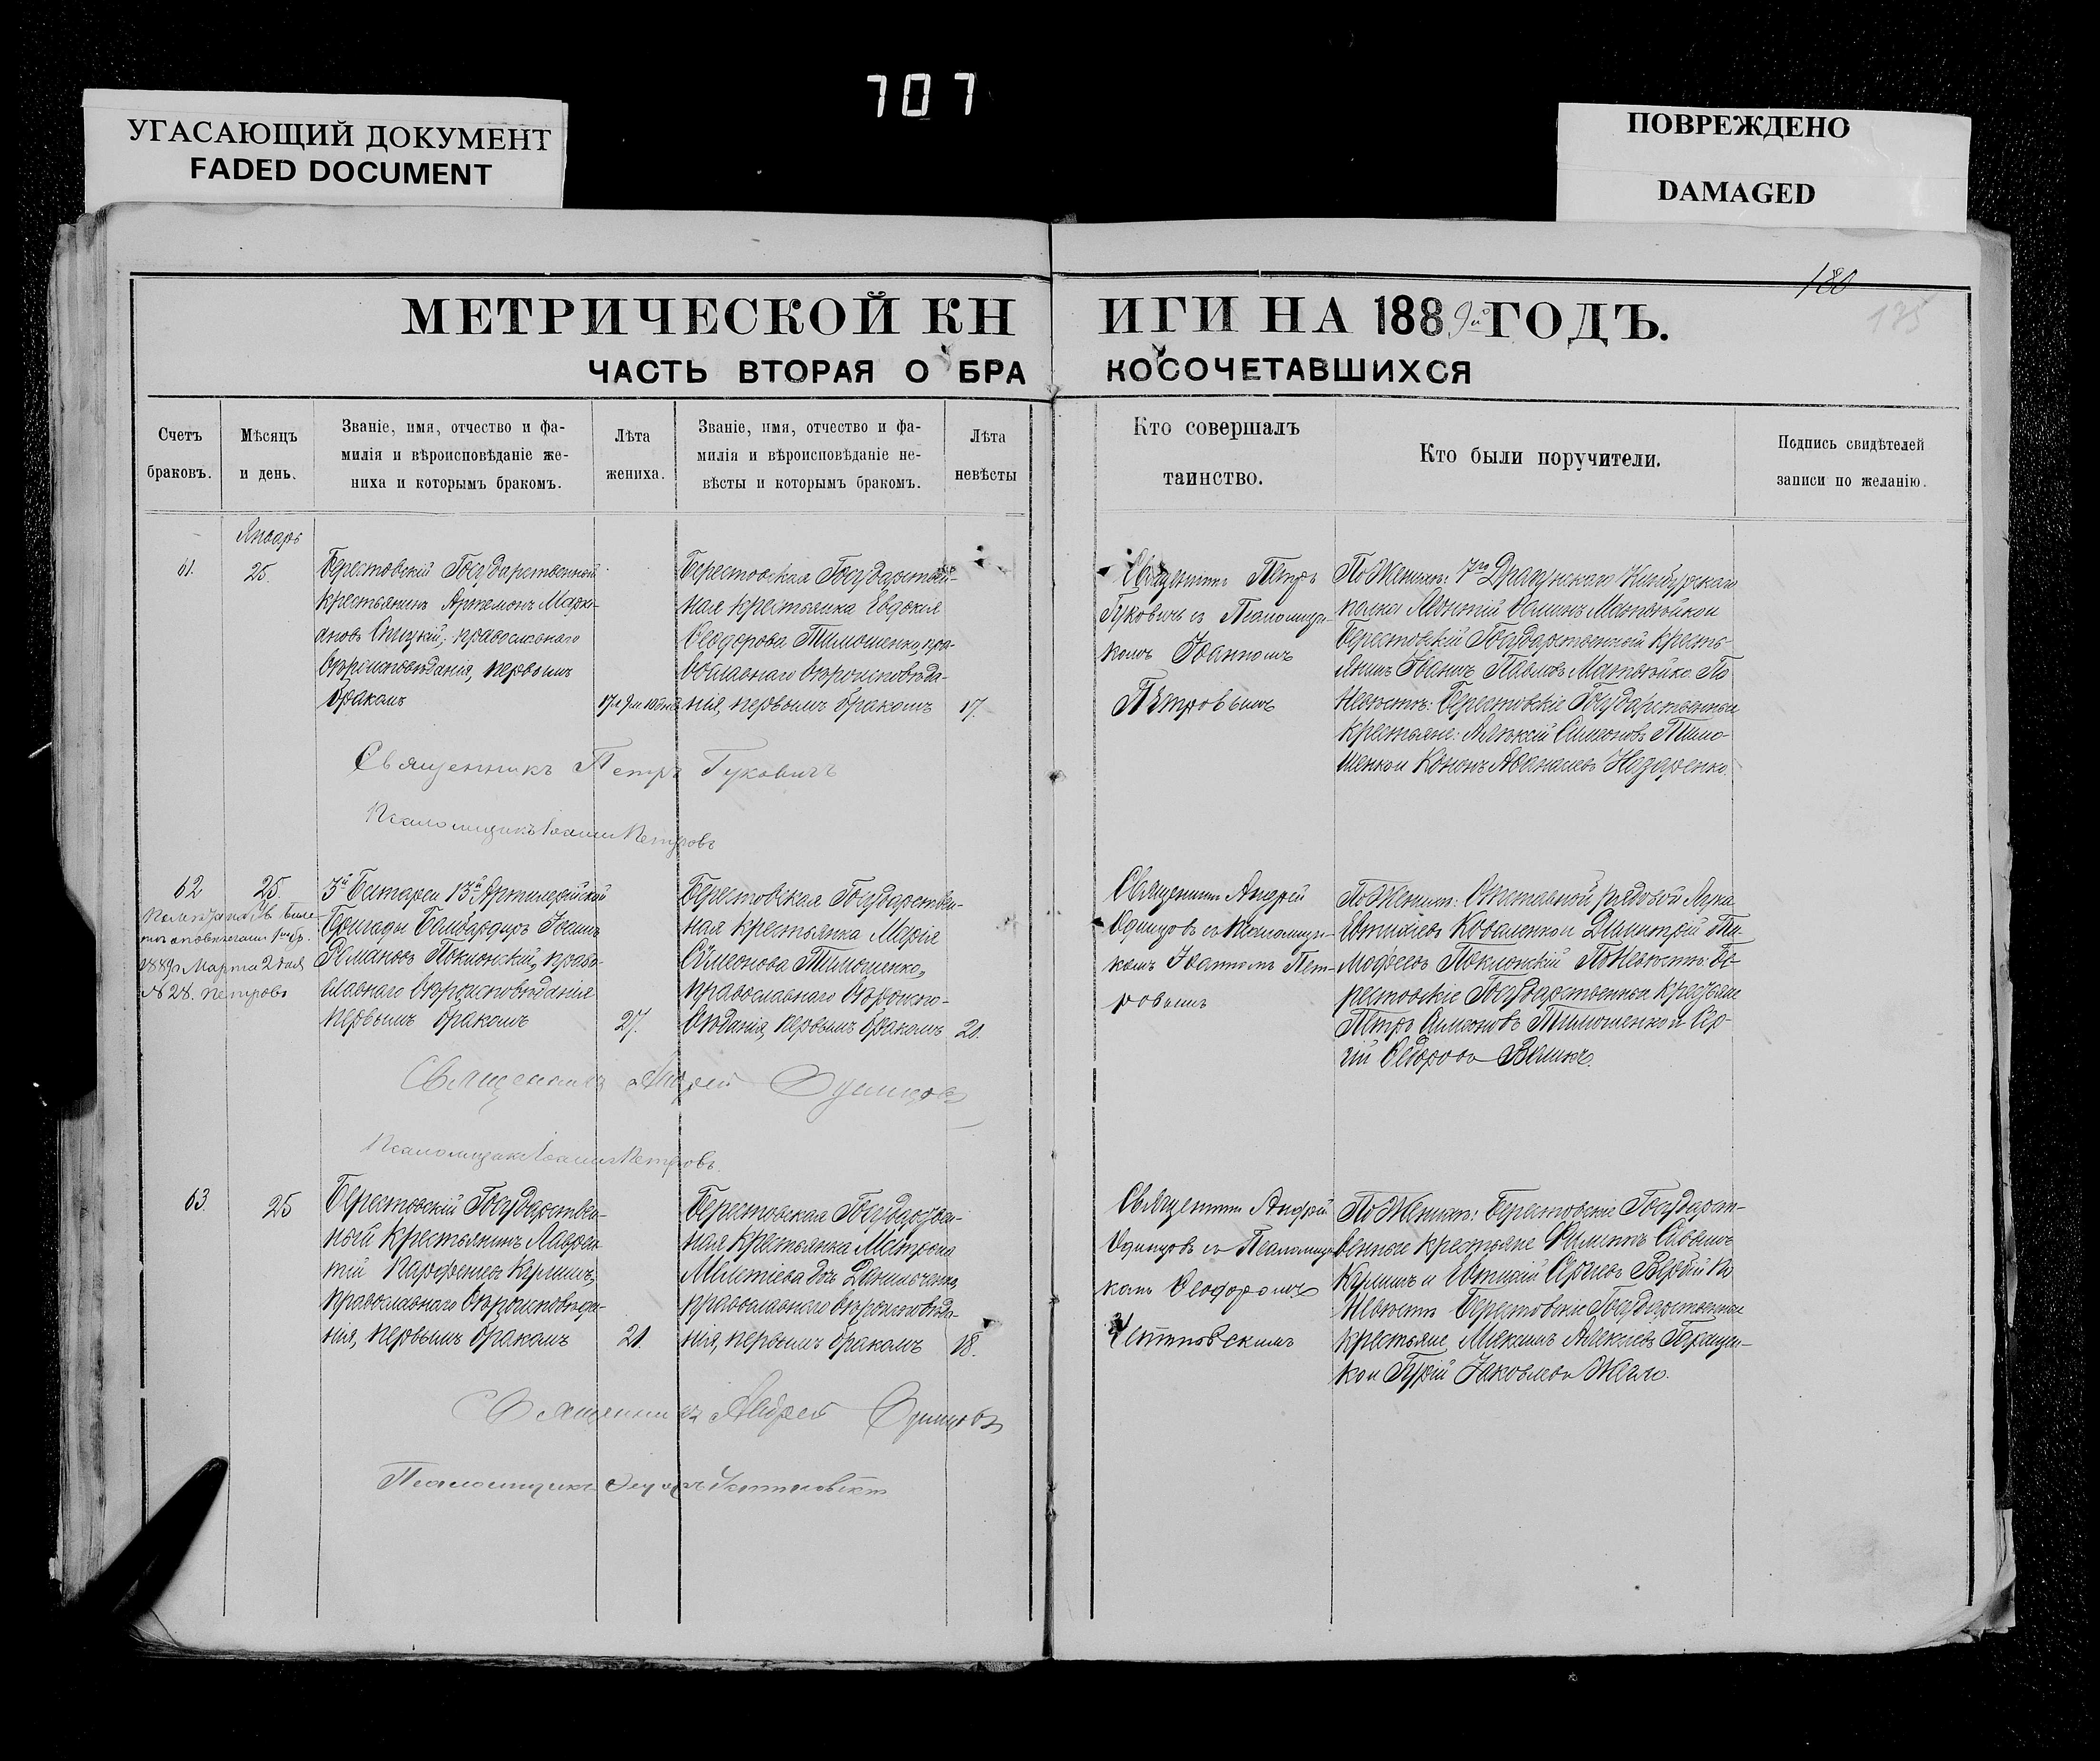 707
УГАСАЮЩИЙ ДОКУМЕНТ
FADED DOCUMENT
ПОВРЕЖДЕНО
DAMAGED
180
175
МЕТРИЧЕСКОЙ КНИГИ НА 1889й ГОДЪ.
ЧАСТЬ ВТОРАЯ О БРАКОСОЧЕТАВШИХСЯ
Счетъ
браковъ.
Мѣсяцъ
и день.
Званіе, имя, отчество и фа-
милія и вѣроисповѣданіе же-
ниха и которымъ бракомъ.
Лѣта
жениха.
Званіе, имя, отчество и фа-
милія и вѣроисповѣданіе не-
вѣсты и которымъ бракомъ.
Лѣта
невѣсты
Кто совершалъ
таинство.
Кто были поручители.
Подпись свидѣтелей
записи по желанію.
Январь
61.
25.
Берестовскій Государственной
крестьянинъ Артемонъ Марки-
ановъ Спицкій, православнаго
вѣроисповѣданія, первымъ
бракомъ
Берестовская Государствен-
ная крестьянка Евдокія
Ѳеодорова Тимошенко, пра-
вославнаго вѣроисповѣда-
нія, первымъ бракомъ
17.
Священникъ Петръ
Гуковичъ съ Псаломщи-
комъ Іоанномъ
Петровымъ
По Женихѣ: 7го Драгунскаго Кинбурскаго
полка
Берестовскій Государственной кресть-
янинъ Іванъ Павловъ Матвѣйко. По
Невѣстѣ: Берестовскіе Государственные
крестьяне: Алексій Симеоновъ Тимо-
шенко и Кононъ Аѳанасіевъ Назаренко.
Священникъ Петръ Гуковичъ
Псаломщикъ Іоаннъ Петровъ
62
25.
1889 г. Марта 2 дня
№ 28. Петровъ
3й Батареи 13й Артилерійской
Бригады Бомбардиръ Іоаннъ
Романовъ Поклонскій, право-
славнаго вѣроисповѣданія
первымъ бракомъ
27.
Берестовская Государствен-
ная крестьянка Марія
Сѵмеонова Тимошенко,
православнаго вѣроиспо-
вѣданія, первымъ бракомъ
21.
Священникъ Андрей
Одинцовъ съ Псаломщи-
комъ Іоанномъ Пет-
ровымъ
По Женихѣ: Отставной рядовой Лука
Евтихіевъ Коваленко и Димитрій Ти-
моѳеевъ Поклонскій По Невѣстѣ: Бе-
рестовскіе Государственные крестьяне
Петръ Симеоновъ Тимошенко и Сер-
гій Ѳедоровъ
Священникъ Андрей Одинцовъ
Псаломщикъ Іоаннъ Петровъ.
63.
25
Берестовскій Государствен-
ной крестьянинъ Лаврен-
тій Парфеніевъ
православнаго вѣроисповѣда-
нія, первымъ бракомъ
21.
Берестовская Государствен-
ная крестьянка Матрона
Мелетіева дочь Данильченко,
православнаго вѣроисповѣда-
нія, первымъ бракомъ
18.
Священникъ Андрей
Одинцовъ съ Псаломщи-
комъ Ѳеодоромъ
По Женихѣ: Берестовскіе Государст-
венные крестьяне Филиппъ Саввинъ
Невѣстѣ Берестовскіе Государственные
крестьяне, Максимъ Алексіевъ
ко и Гурій Іаковлевъ
Священникъ Андрей Одинцовъ
Псаломщикъ